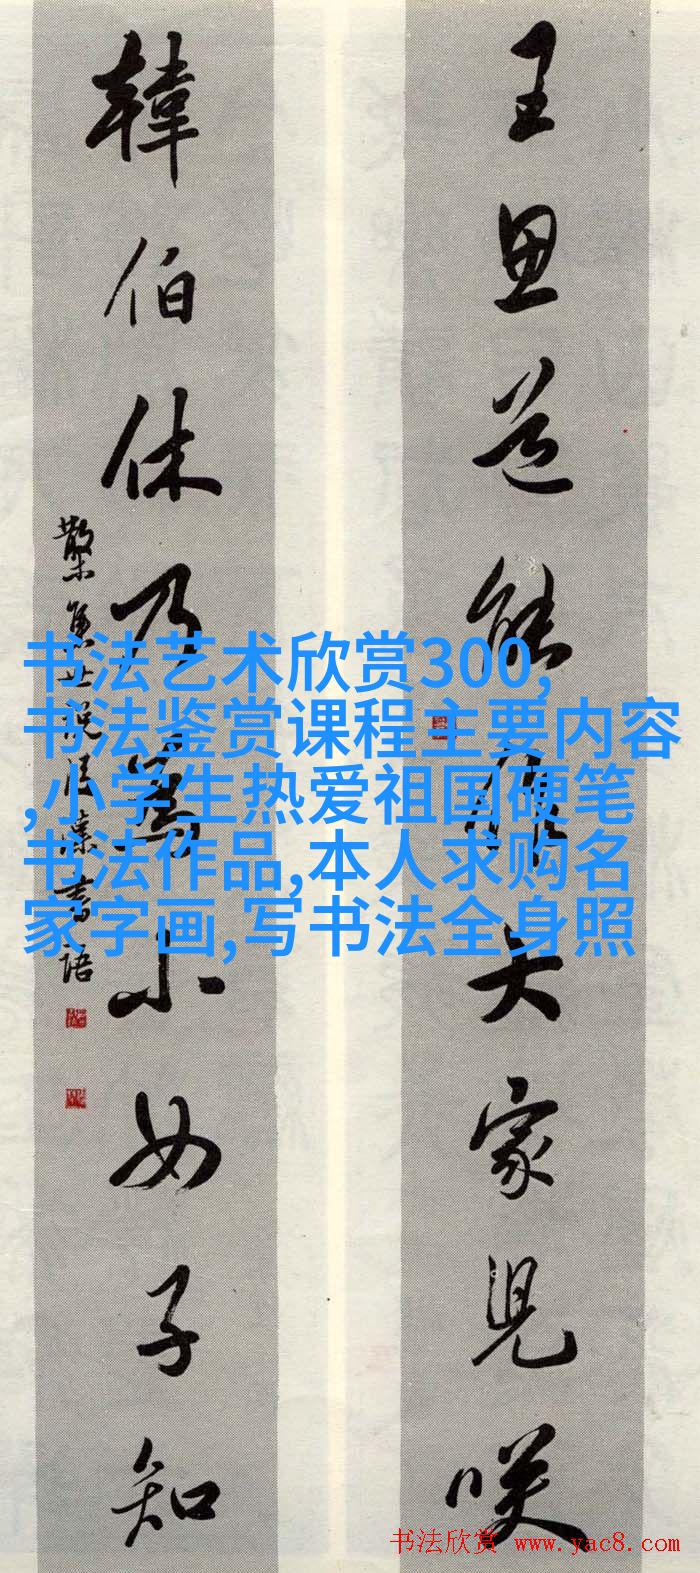 王思道能作大家兒咲
韓伯休乃為小女子知
书法艺术欣赏300,
书法鉴赏课程主要内容
,小学生热爱祖国硬笔
书法作品,本人求购名
家字画,写书法全身照
书法欣赏 www.yac8.com